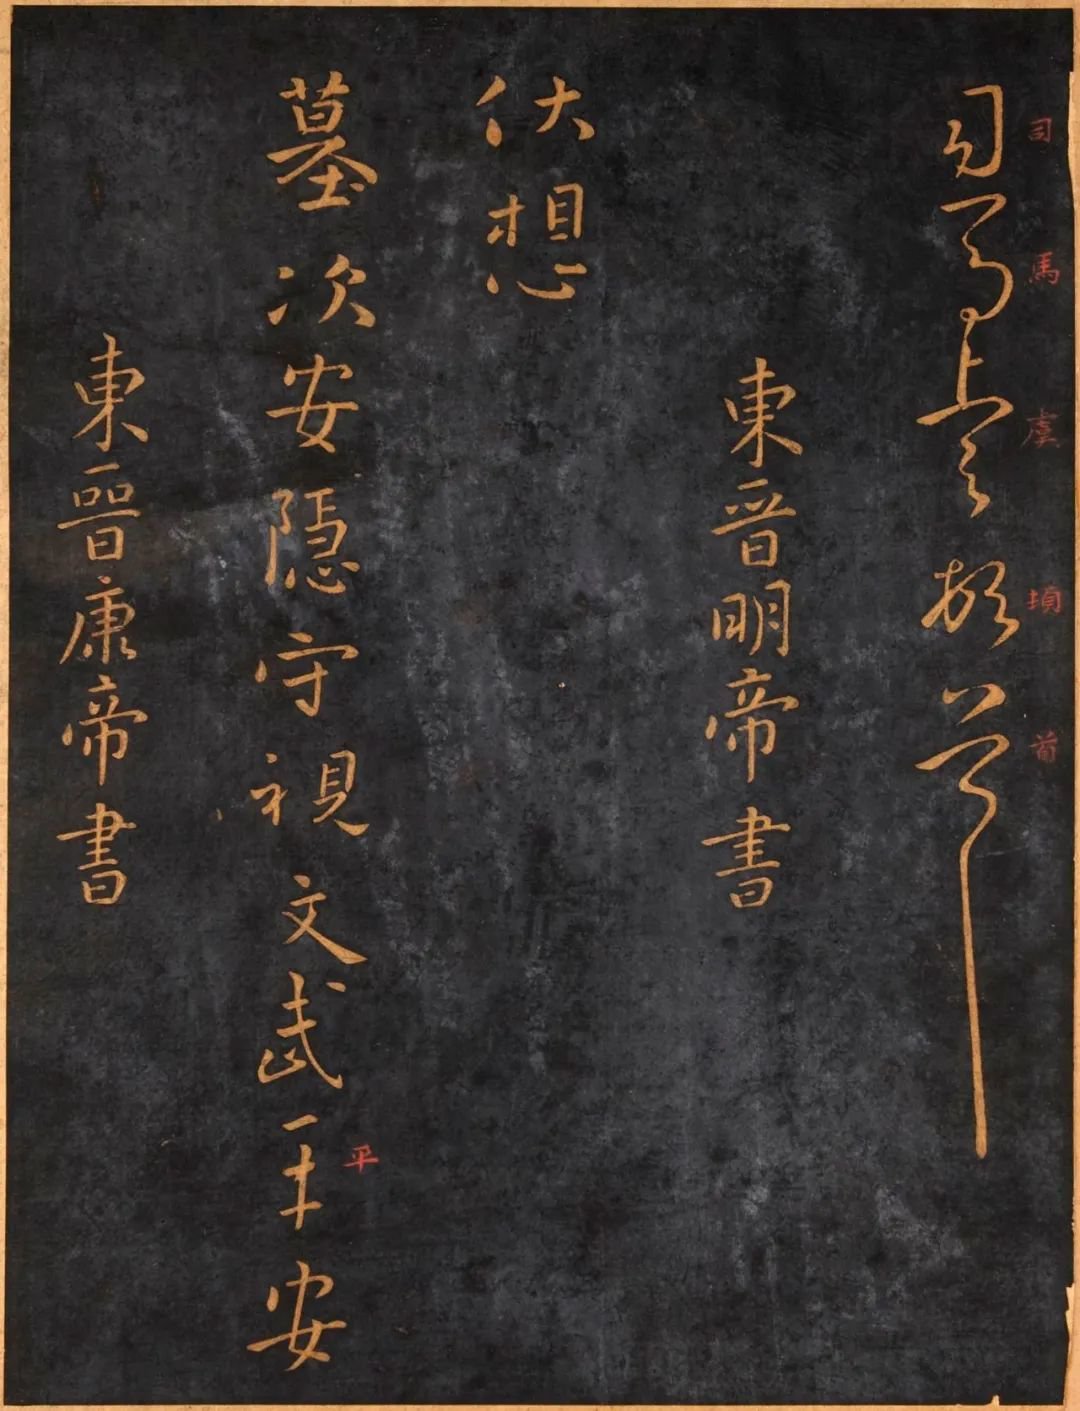 司馬虞頓首
司馬虞頓首
東晋明帝書
伏想
墓次安隱守視文武平安
平
東晉康帝書